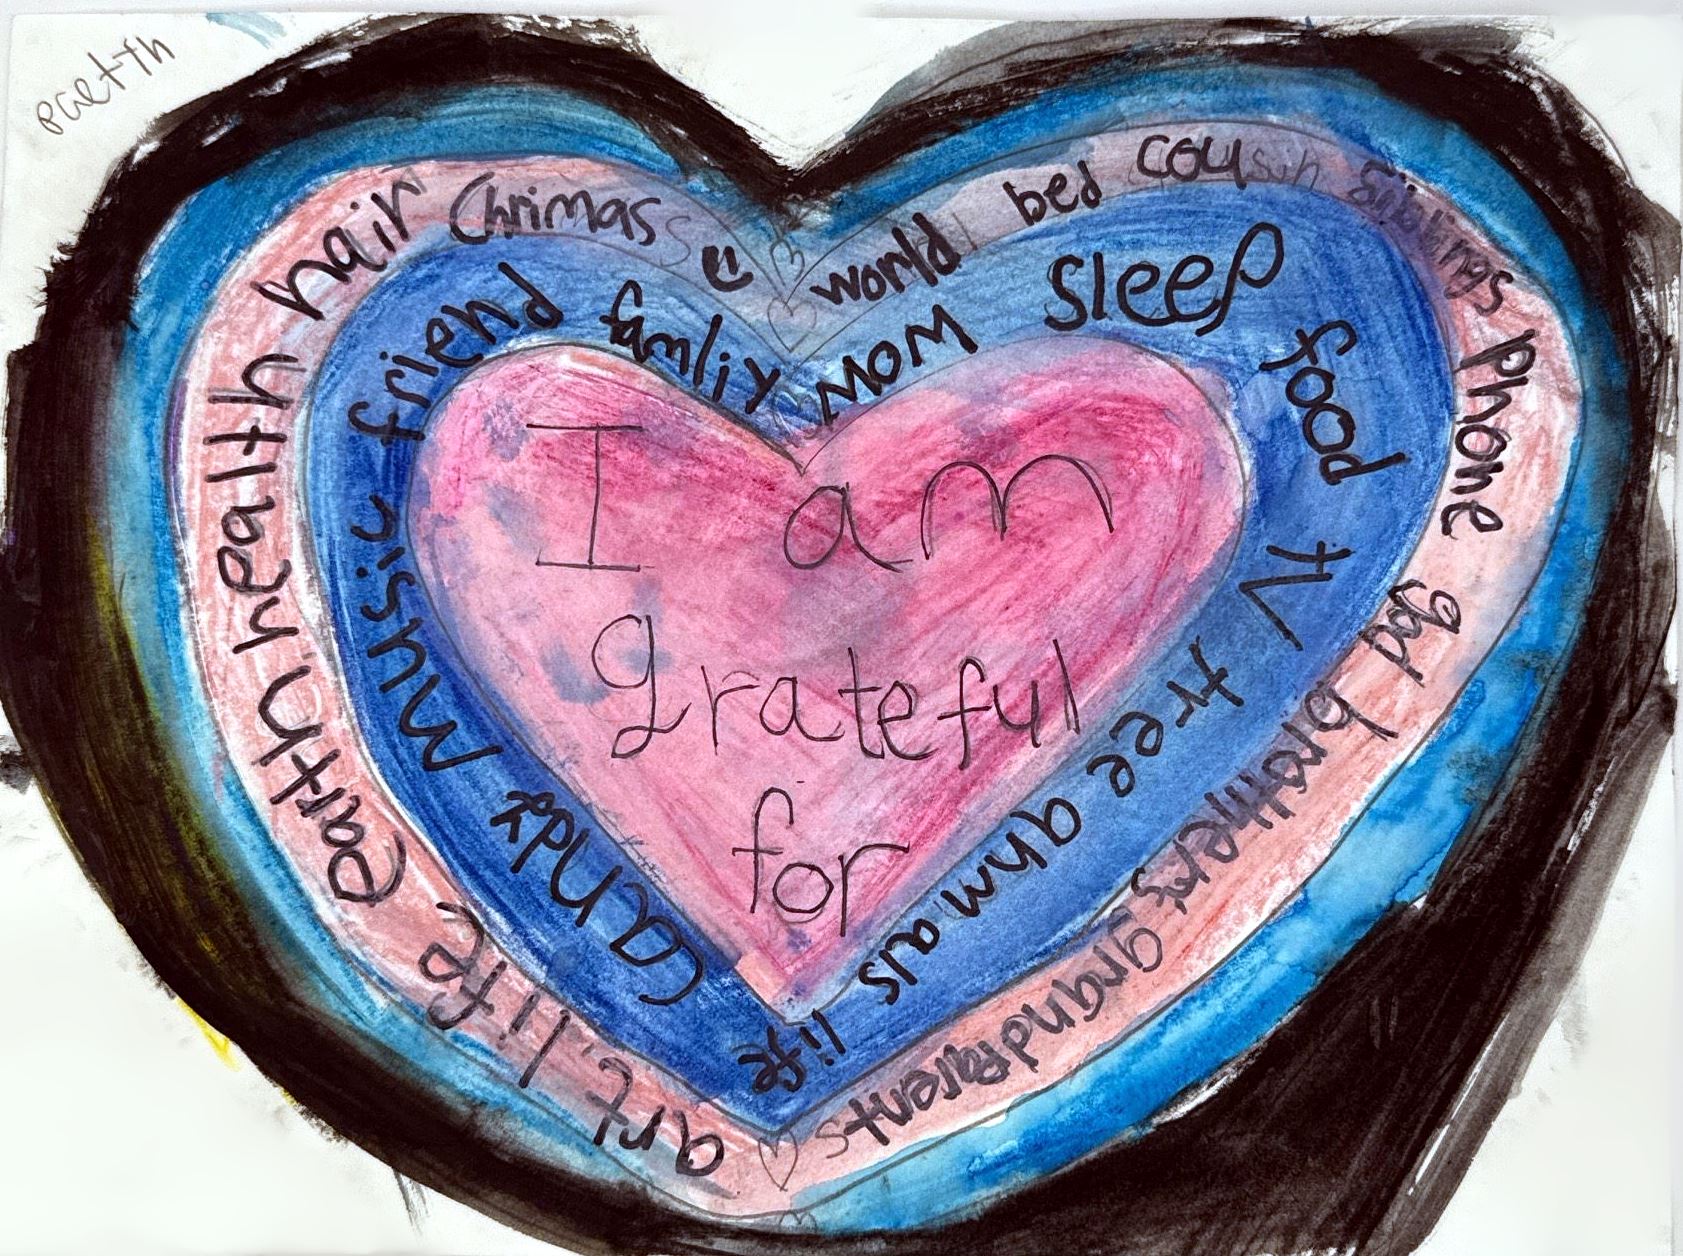 I am
grateful
for
Mom sleep food tv tree ahmals life
candy music friend famliy
world bed cousin siblings phone god brothers grandparents
art life earth health hair Chrimas